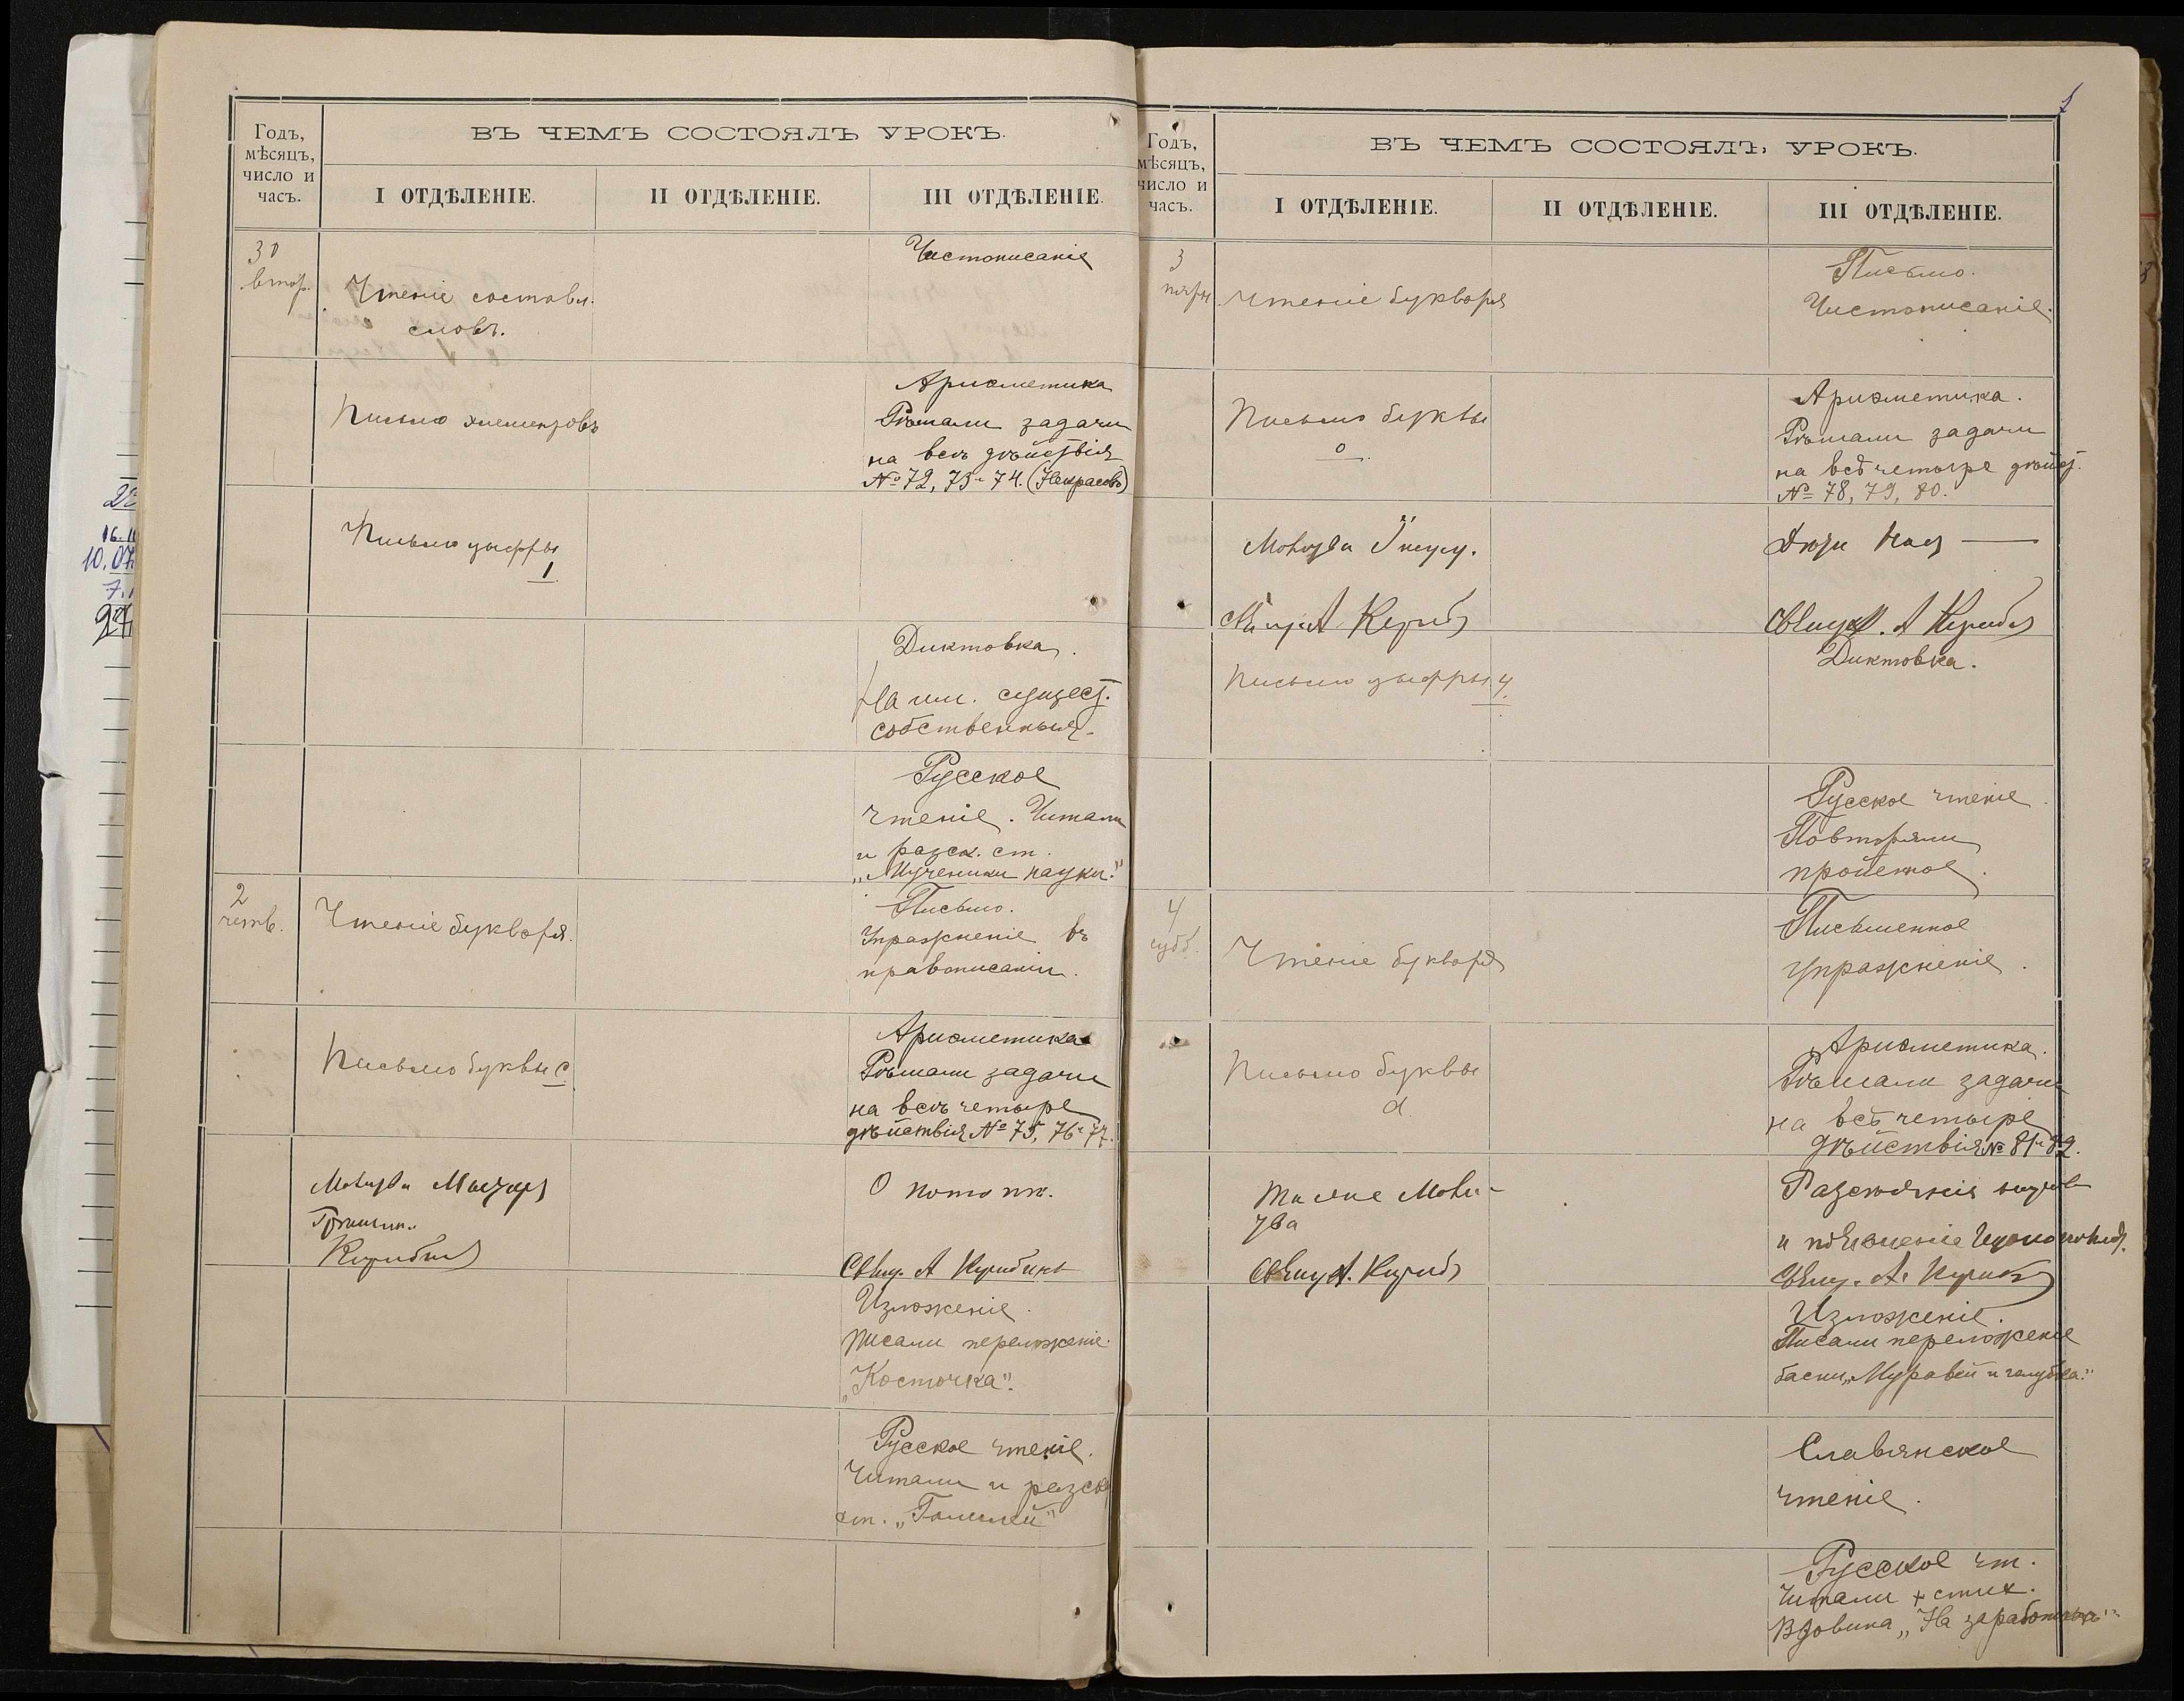 Годъ,
мѣсяцъ,
число и
часъ.
ВЪ ЧЕМЪ СОСТОЯЛЪ УРОКЪ.
I ОТДѢЛЕНІЕ.
II ОТДѢЛЕНІЕ.
III ОТДѢЛЕНІЕ.
30
втор.
Чтеніе составл.
словъ.
Чистописаніе
Письмо элементовъ
Ариѳметика
Рѣшали задачи
на всѣ дѣйствія
№ 72, 73 и 74. (Некрасовъ)
Письмо цыфры
1.
Диктовка.
На им. сущест.
собственныя.
Русское
чтеніе. Читали
и разск. ст.
„Мученики науки."
2
четв.
Чтеніе букваря.
Письмо.
Упражненіе въ
правописаніи.
Письмо буквы с
Ариѳметика
Рѣшали задачи
на всѣ четыре
дѣйствія № 75, 76 и 77.
Молитва Мытаря
О потопѣ.
Свящ. А
Изложеніе.
Писали переложеніе
„Косточка".
Русское чтеніе.
Читали и разск.
ст. „Галилей"
1
Годъ,
мѣсяцъ,
число и
часъ.
ВЪ ЧЕМЪ СОСТОЯЛЪ УРОКЪ.
I ОТДѢЛЕНІЕ.
II ОТДѢЛЕНІЕ.
III ОТДѢЛЕНІЕ.
3
пятн.
Чтеніе букваря
Письмо.
Чистописаніе.
Письмо буквы
о.
Ариѳметика.
Рѣшали задачи
на всѣ четыре дѣйст.
№ 78, 79, 80.
Молитва Іисусу.
Свящ. А
Свящ. А
Письмо цыфры 4.
Диктовка.
Русское чтеніе.
Повторяли
пройеное.
4
субб.
Чтеніе букваря
Письменное
упражненіе.
Письмо буквы
а.
Ариѳметика.
Рѣшали задачи
на всѣ четыре
дѣйствія № 81 и 82.
Свящ. А.
Свящ. А.
Изложеніе.
Писали переложеніе
басни „Муравей и голубка."
Славянское
чтеніе.
Русское чт.
Читали + стих.
Вдовина „На заработки"